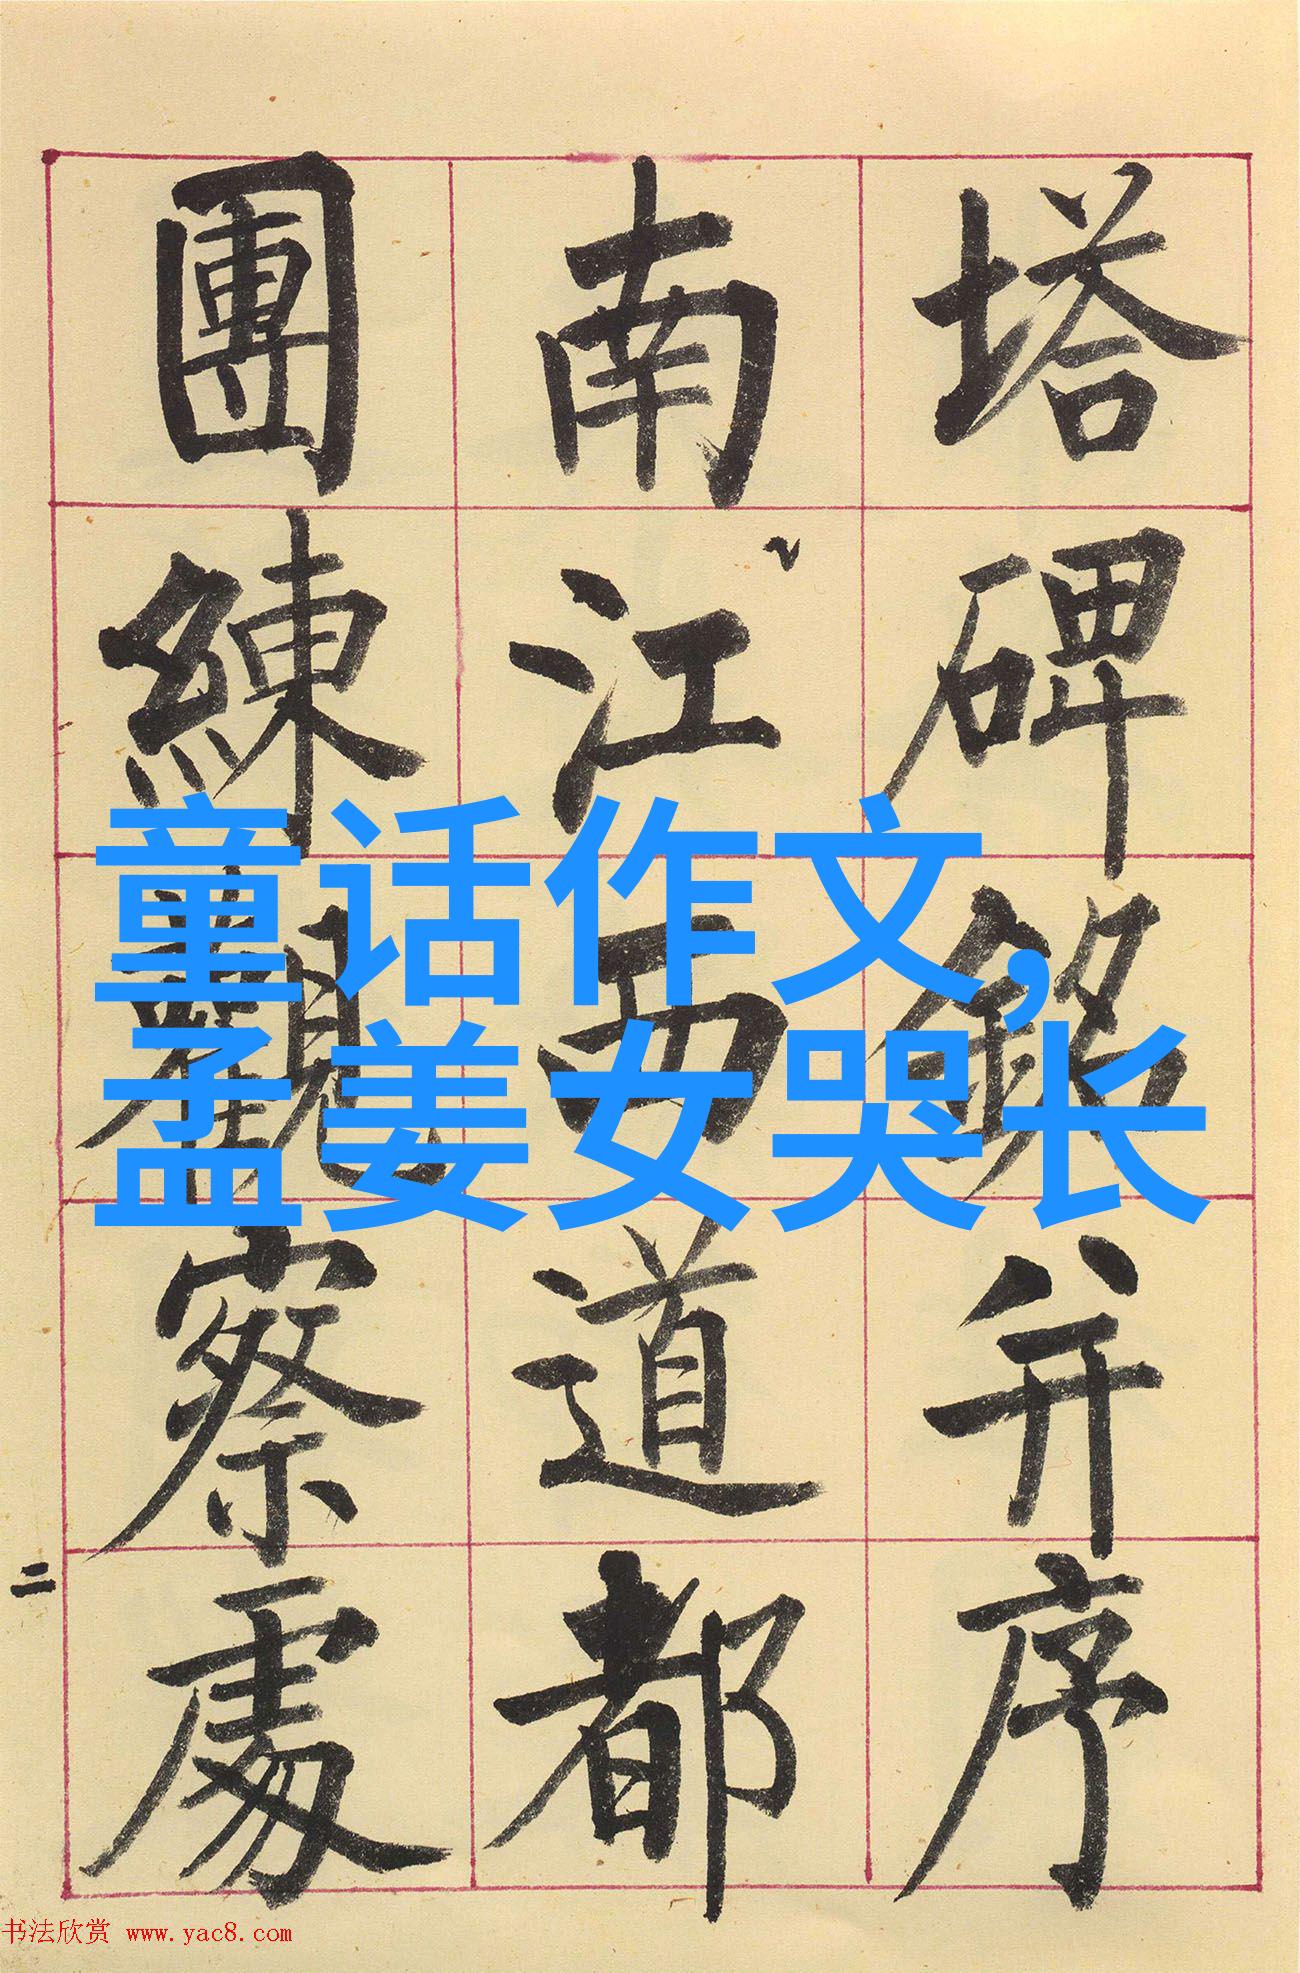 塔碑銘并序
南江西道都
團練觀察處
二
童话作文,
孟姜女哭长
书法欣赏 www.yac8.com